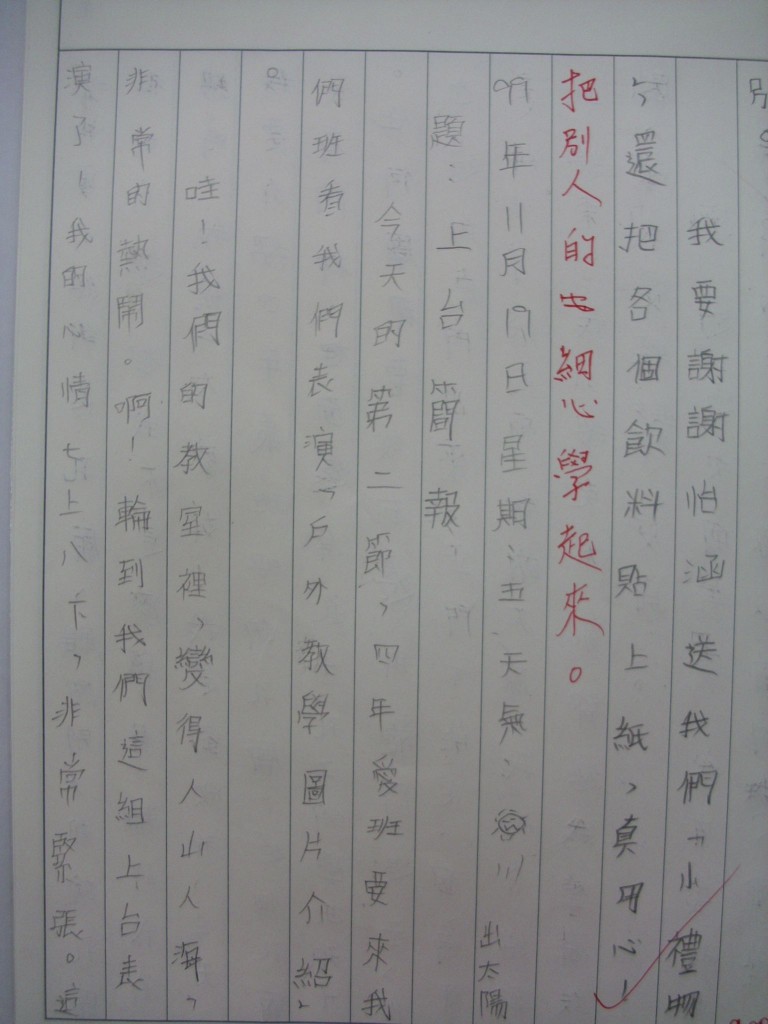 別。
我要謝謝怡涵送我們「小禮物
」,還把各個飲料點上紙,真用心!
把別人的細心學起來。
99年11月19日星期:五 天氣: 出太陽
題:上台簡報,
今天的第二節,四年愛班要來我
們班看我們表演「戶外教學圖片介紹」
。
哇!我們的教室裡,變得人山人海,
非常的熱鬧。啊!輪到我們這組上台表
演了!我的心情七上八下,非常緊張。這